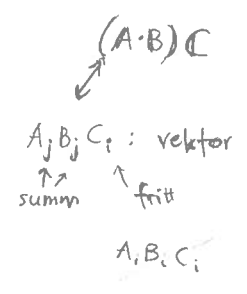 (A·B) ℂ
A_j B_j C_i : vektor
summ fritt
A_i B_i C_i